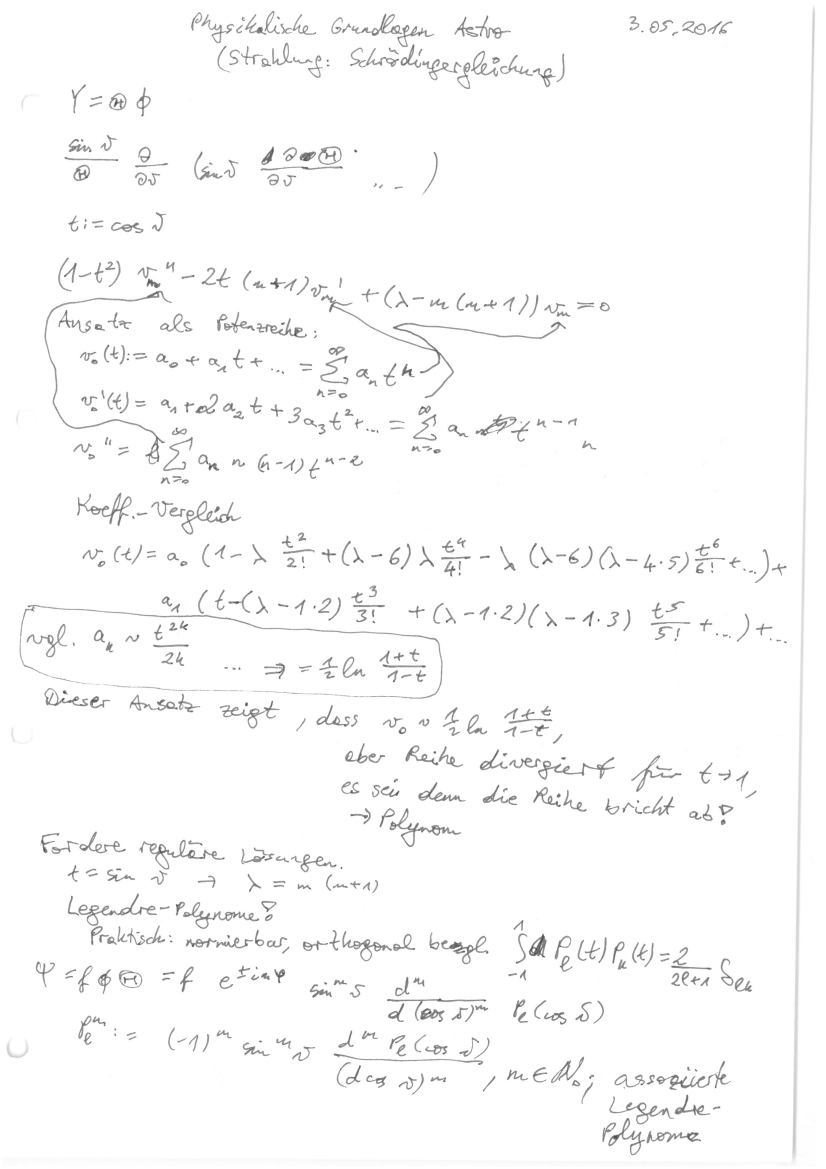 Physikalische Grundlagen Astro 3.05.2016
(Strahlung: Schrödingergleichung)
Y = Θ ϕ
sin ϑ / Θ ∂/∂ϑ (sin ϑ ∂Θ/∂ϑ ... )
t := cos ϑ
(1-t²) v_m'' - 2t (m+1) v_m' + (λ - m (m+1)) v_m = 0
Ansatz als Potenzreihe:
v₀(t) := a₀ + a₁ t + ... = Σ_{n=0}^{∞} a_n t^n
v₀'(t) = a₁ + 2 a₂ t + 3 a₃ t² + ... = Σ_{n=0}^{∞} a_n t^{n-1} n
v₀'' = Σ_{n=0}^{∞} a_n n (n-1) t^{n-2}
Koeff.-Vergleich
v₀(t) = a₀ (1 - λ t²/2! + (λ-6) λ t⁴/4! - λ (λ-6) (λ-4·5) t⁶/6! + ...) +
a₁ (t - (λ-1·2) t³/3! + (λ-1·2)(λ-1·3) t⁵/5! + ...) + ...
vgl. a_k ~ t^{2k}/2k ... ⇒ = ½ ln (1+t)/(1-t)
Dieser Ansatz zeigt, dass v₀ ~ ½ ln (1+t)/(1-t),
aber Reihe divergiert für t→1,
es sei denn die Reihe bricht ab!
→ Polynom
Fordere reguläre Lösungen.
t = sin ϑ → λ = m (m+1)
Legendre-Polynome!
Praktisch: normierbar, orthogonal bezgl. ∫_{-1}^{1} P_l(t) P_k(t) = 2/(2l+1) δ_{lk}
Ψ = f ϕ Θ = f e^{±imφ} sin^m ϑ d^m/d(cos ϑ)^m P_l(cos ϑ)
P_l^m := (-1)^m sin^m ϑ d^m P_l(cos ϑ)/(d cos ϑ)^m , m ∈ ℕ₀; assoziierte
Legendre-
Polynome